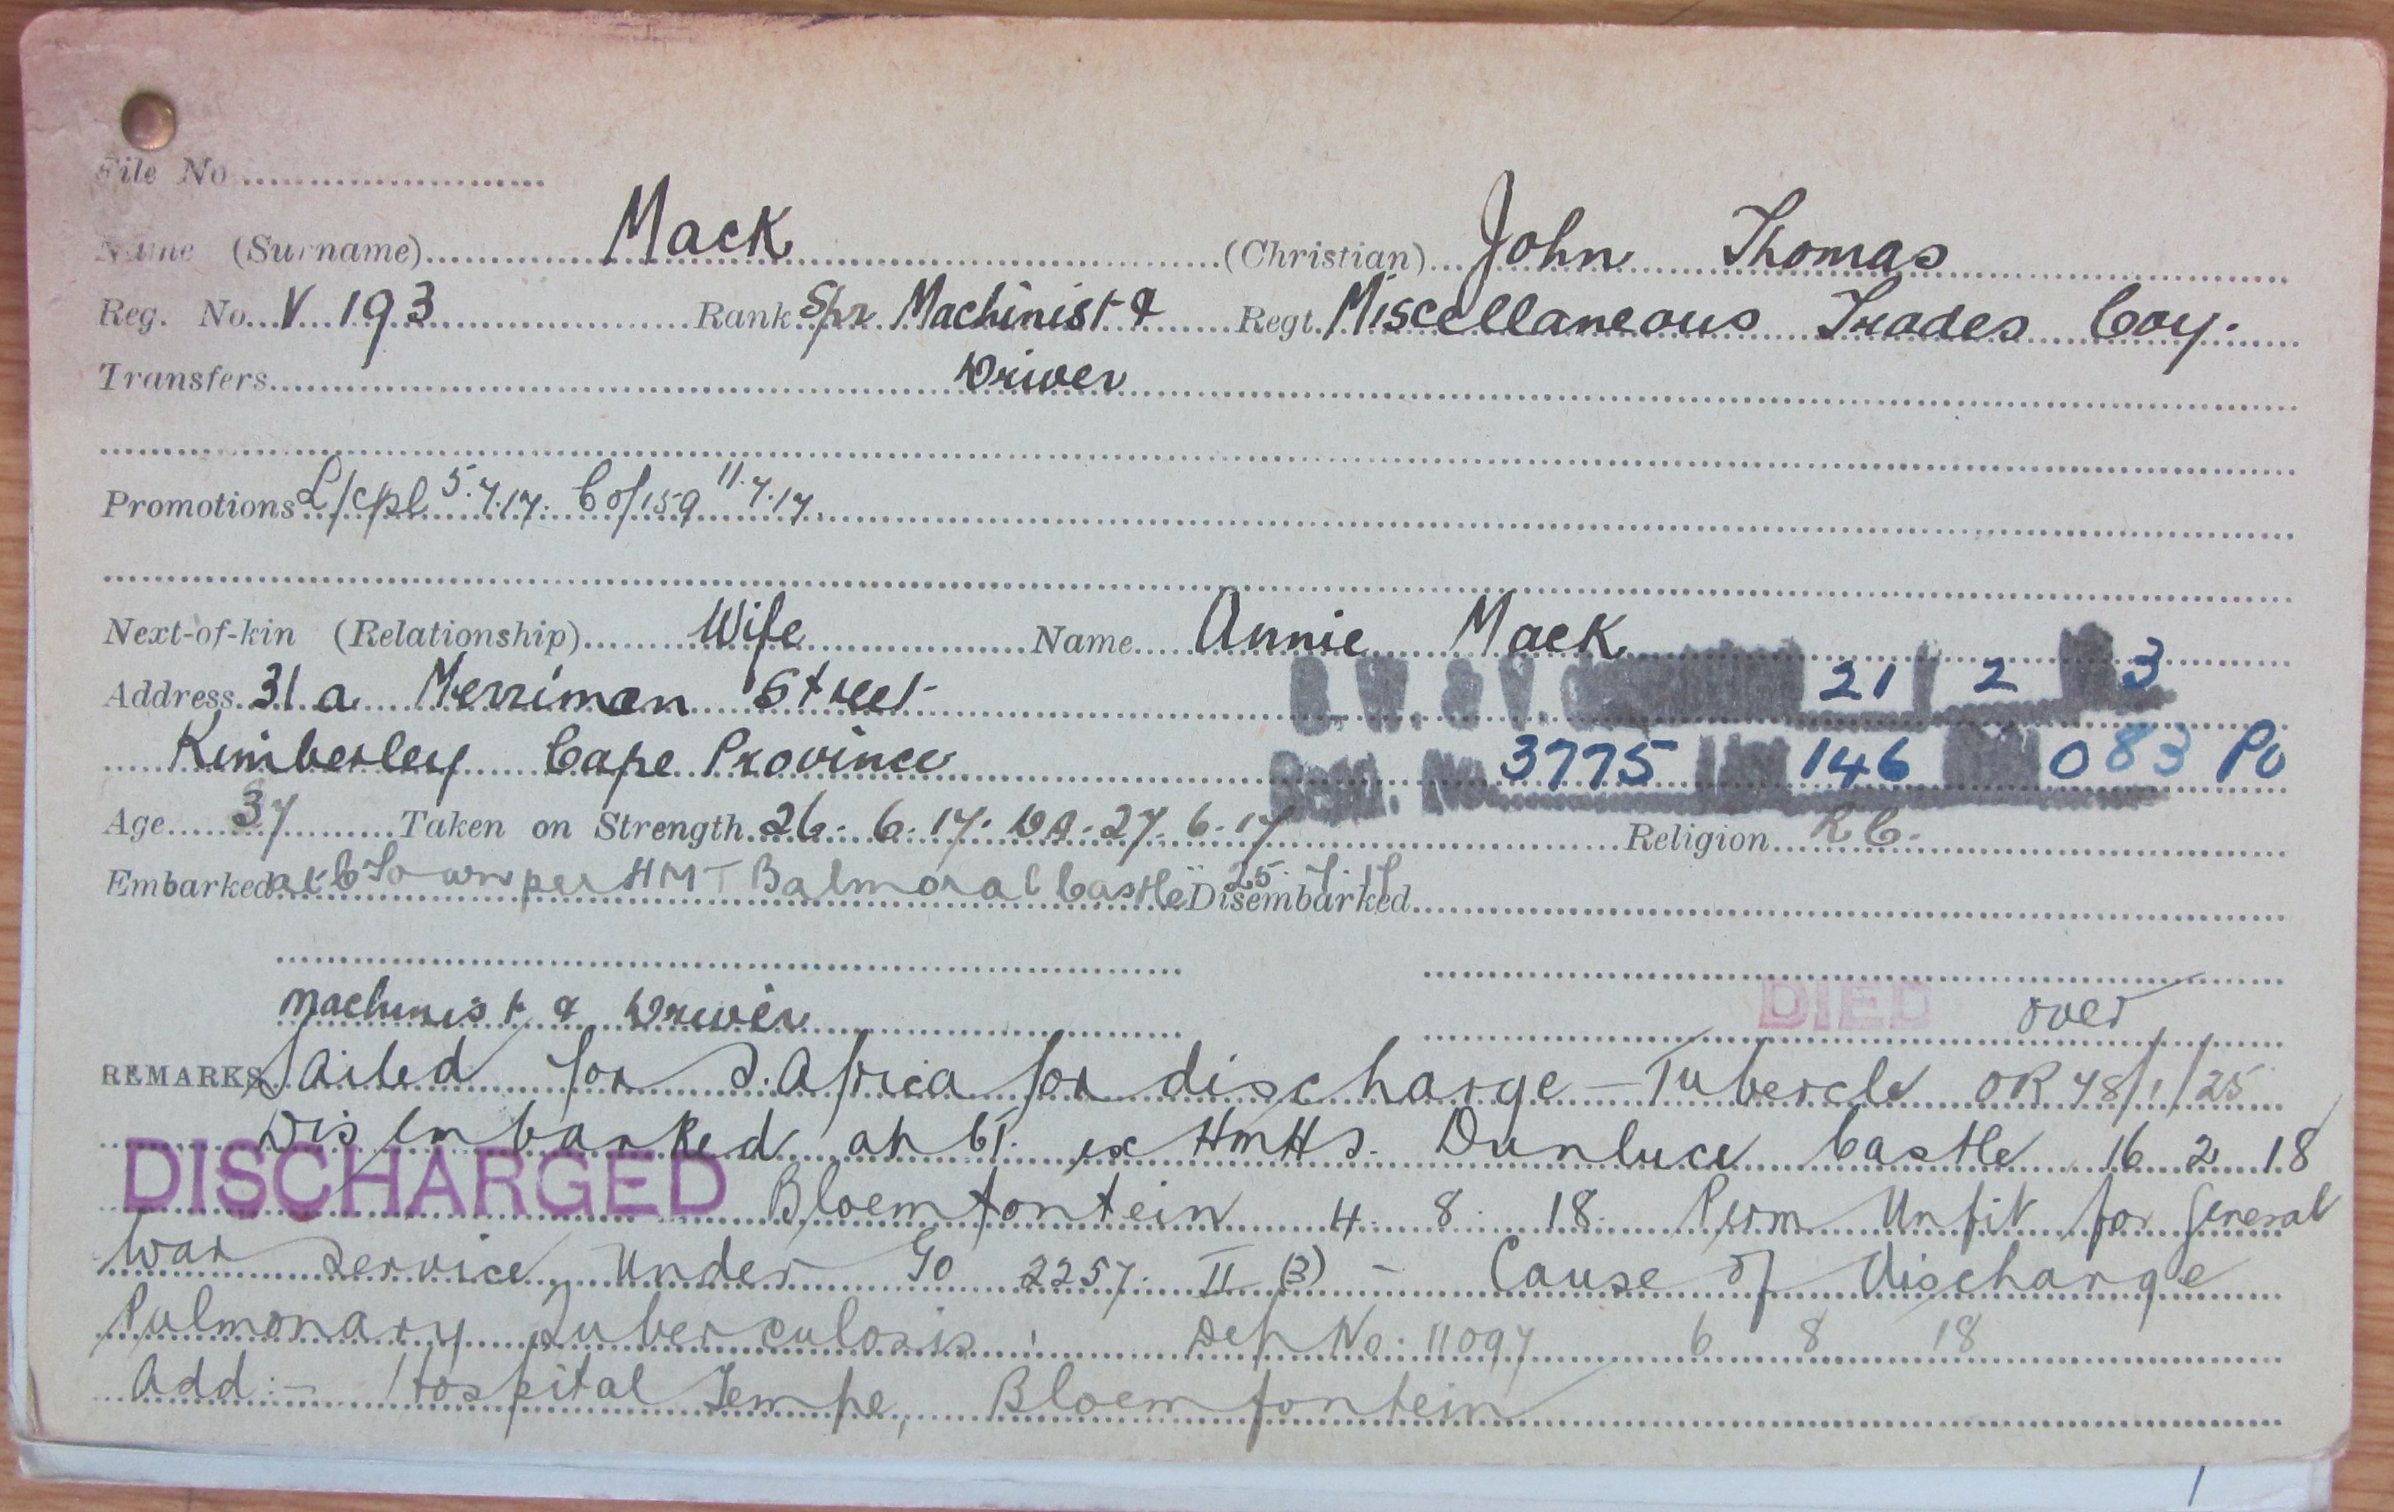 File No
Name (Surname) Mack (Christian) John Thomas
Reg. No. V 193 Rank Spr Machinist & Regt. Miscellaneous Trades Coy.
Transfers Driver
Promotions L/cpl 5.7.17. Co/159 11.7.17.
Next-of-kin (Relationship) Wife Name Annie Mack
Address 31a Merriman Street 21 2 3
Kimberley Cape Province 3775 146 083 Po
Age 37 Taken on Strength 26.6.17. DA. 27.6.17 Religion R C.
Embarked at C Town per HMT Balmoral Castle 25.7.17 Disembarked
Machinist & Driver DIED over
REMARKS Sailed for S. Africa for discharge - Tubercle OR 48/1/25
Disembarked at CT. ex HMHS. Dunluce Castle 16 2 18
DISCHARGED Bloemfontein 4. 8. 18. Perm Unfit for General
War Service Under GO 2257. II (3) - Cause of Discharge
Pulmonary Tuberculosis. Dch No. 11097 6 8 18
Add:- Hospital Tempe, Bloemfontein